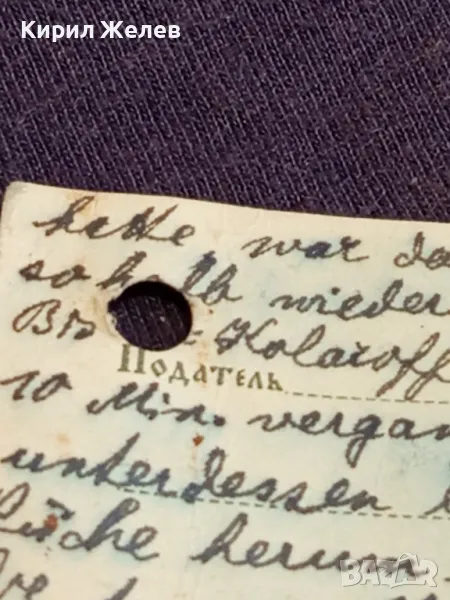 Кирил Желев
hatte war da
so halb wieder
Bis Kolaroff
Податель
10 Min. vergan
unterdessen
Küche herum
BAZAR